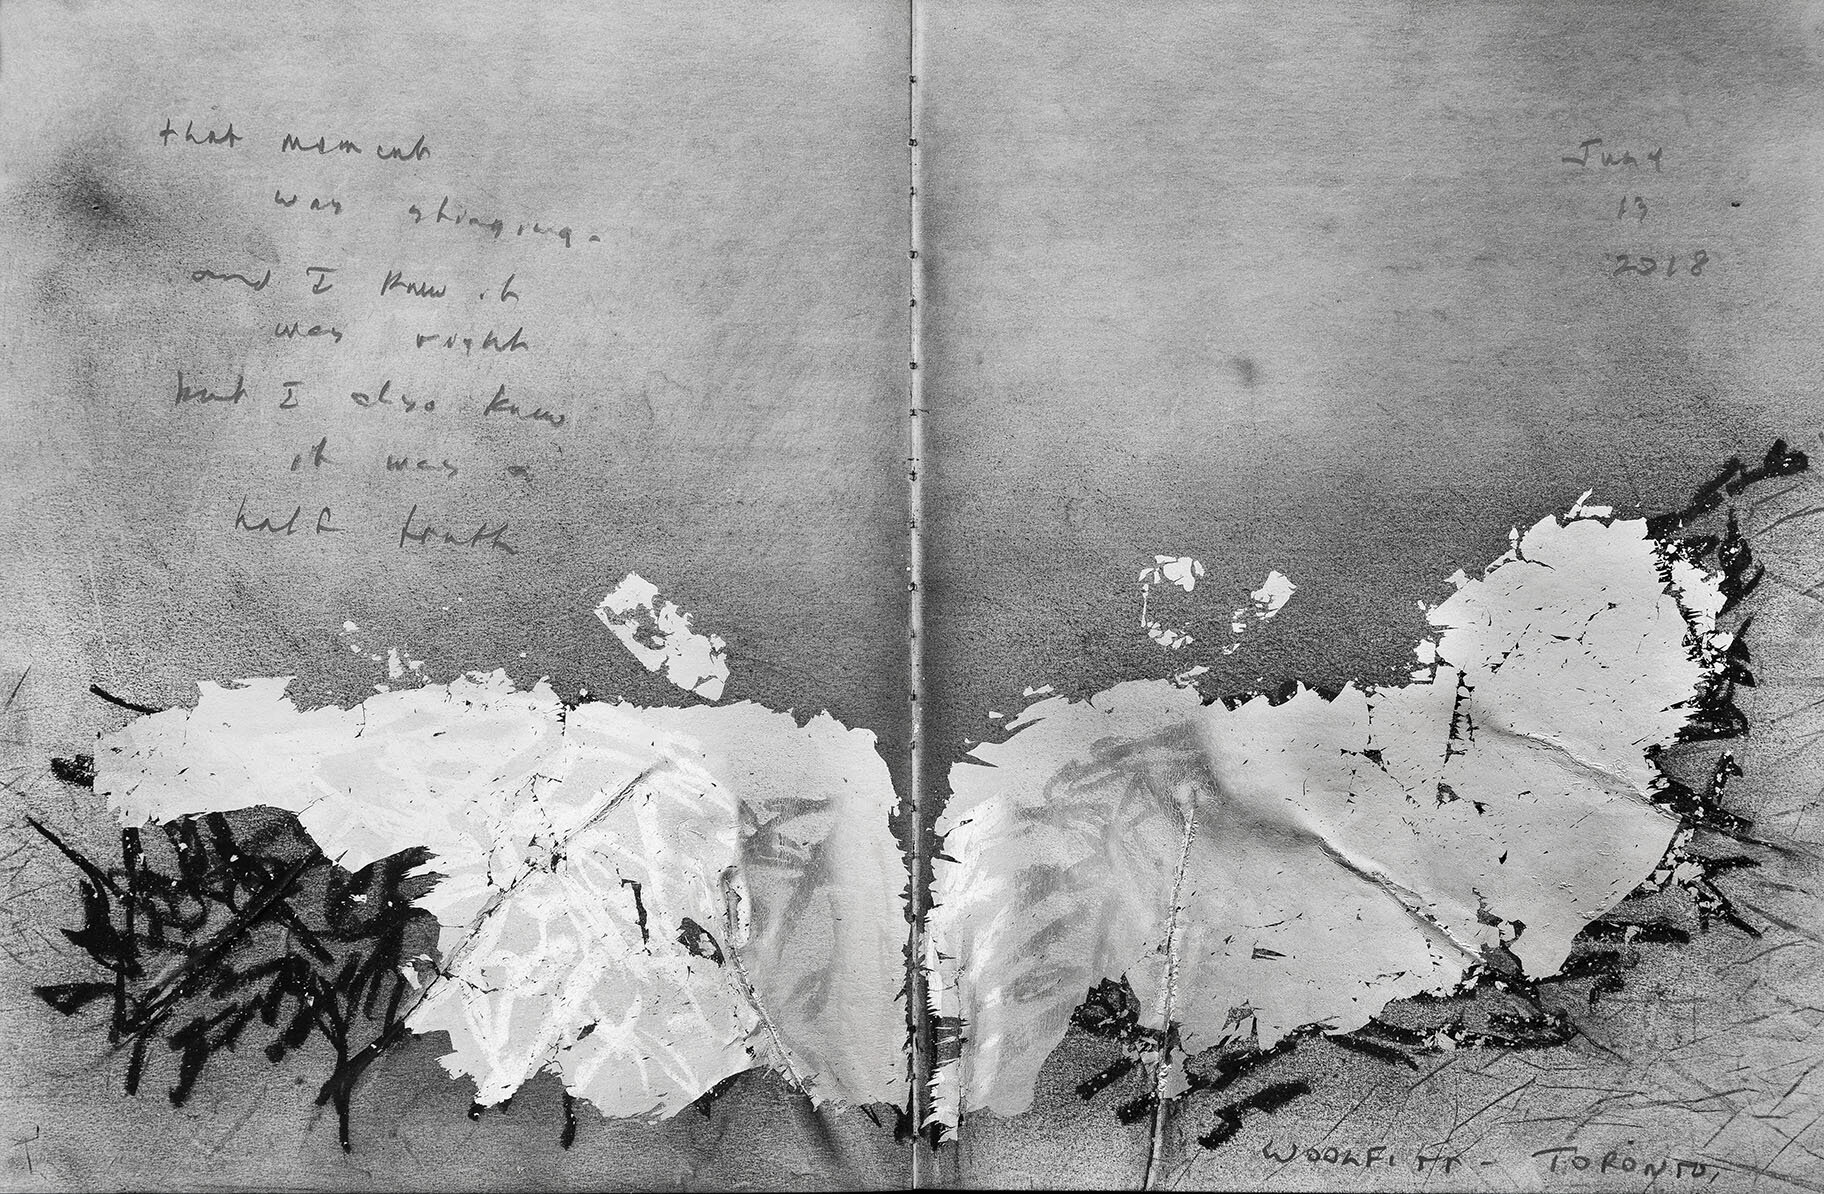 that moment
was stinging.
and I knew it
was right
but I also knew
it was a
half truth
June
13
2018
WOOLFITT - TORONTO,